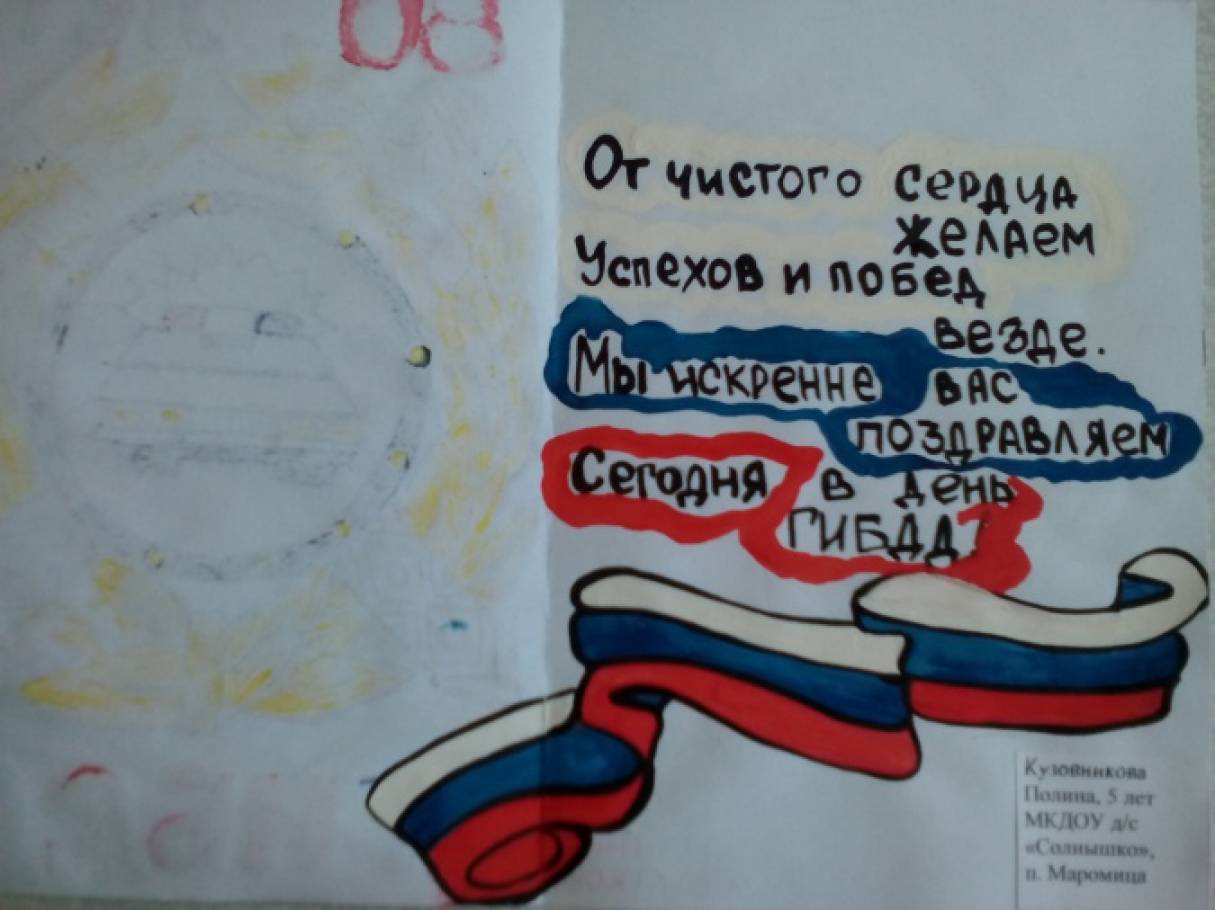 08
От чистого сердца
желаем
Успехов и побед
везде.
Мы искренне вас
поздравляем
Сегодня в день
ГИБДД!
Кузовникова
Полина, 5 лет
МКДОУ д/с
«Солнышко»,
п. Маромица